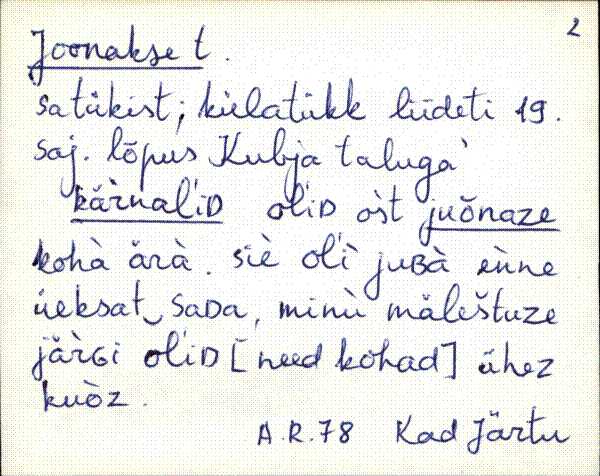 2
Joonakse t.
satükist; külatükk liideti 19.
saj. lõpus Kubja taluga
kä̀rnal'iD ol'iD òst juõnaze
kohà ärà. siè ol'ì juBà ènne
üeksat‿saDa, minù mäleštuze
järGi ol'iD [need kohad] ühez
kuòz.
A.R.78 Kad Järtu